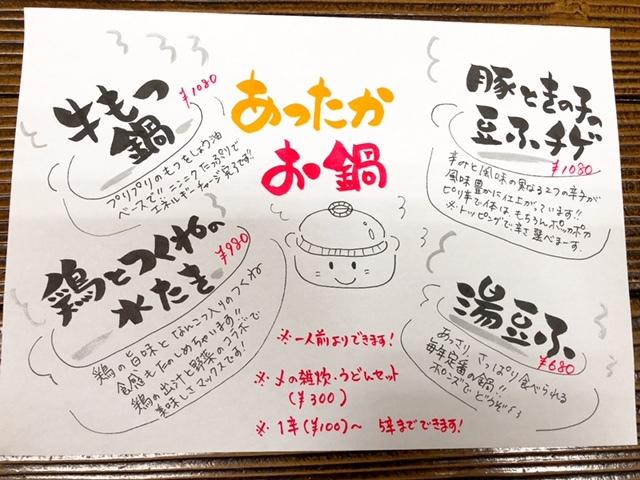 あったか
お鍋
牛もつ
鍋
¥1080
プリプリのもつをしょう油
ベースで!!ニンニクたっぷりで
エネルギーチャージ完了です!!
豚ときのこの
豆ふチゲ
¥1080
辛みと風味の異なる2つの辛子が
風味豊かに仕上がっています!!
ピリ辛で体はもちろんポッカポカ
※トッピングで辛さ選べまーす。
鶏とつくねの
水たき
¥980
鶏の旨味となんこつ入りのつくね
食感もたのしめちゃいます!!
鶏の出汁と野菜のコラボで
美味しさマックスです!
湯豆ふ
¥680
あっさり、さっぱり食べられる
毎年定番の鍋!!
ポンズでどうぞ
※一人前よりできます!
※〆の雑炊・うどんセット
(¥300)
※1辛(¥100)〜 5辛までできます!